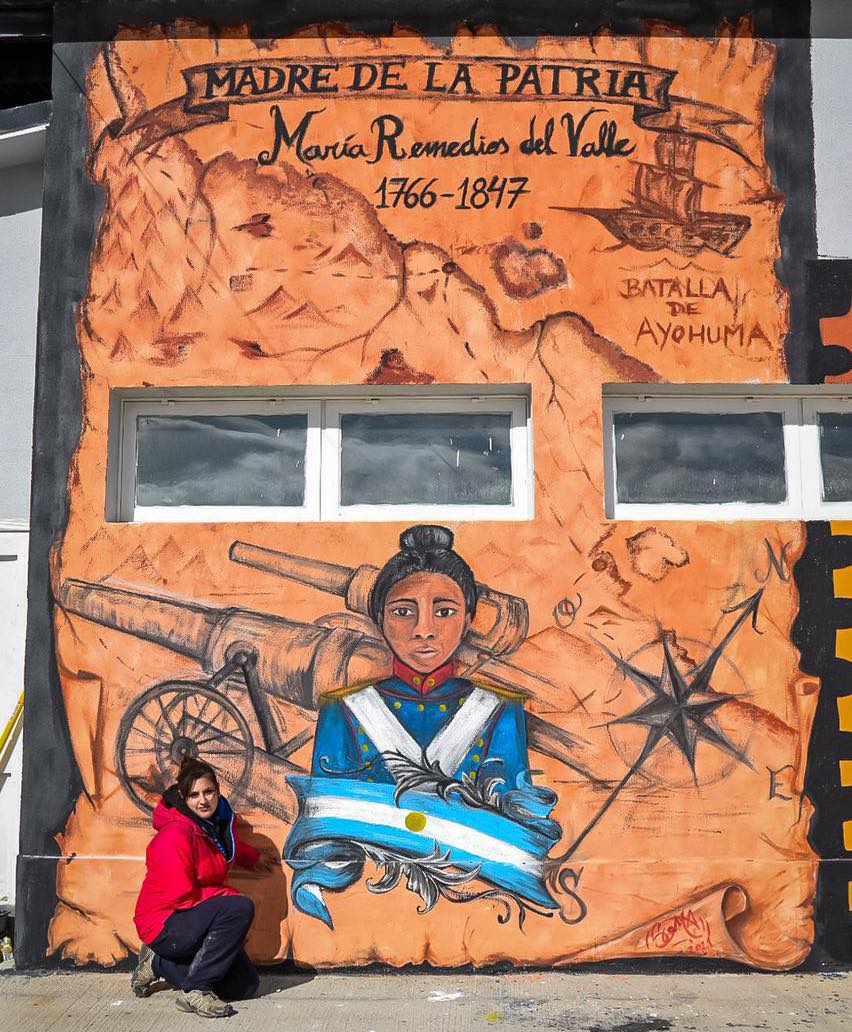 MADRE DE LA PATRIA
María Remedios del Valle
1766-1847
BATALLA
DE
AYOHUMA
N
O
E
S